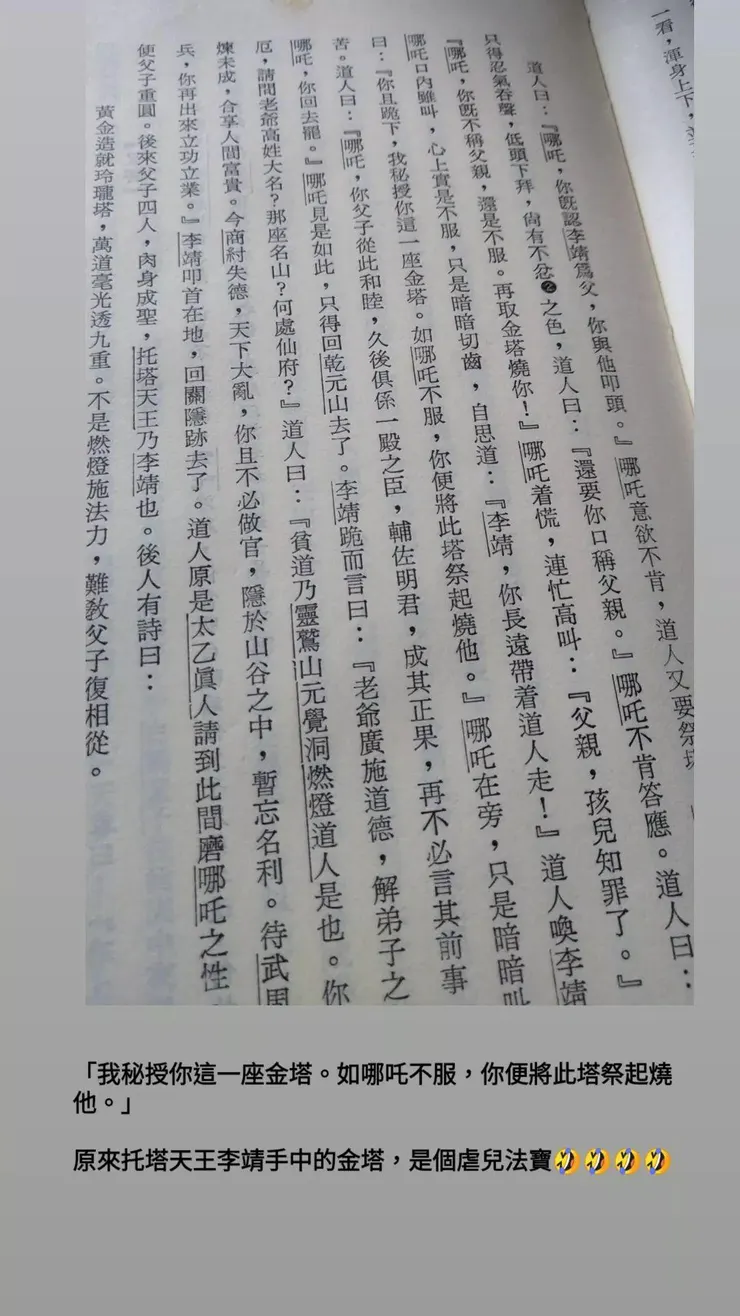 一看，渾身上下，
道人曰：『哪吒，你既認李靖爲父，你與他叩頭。』哪吒意欲不肯，道人又要祭
只得忍氣吞聲，低頭下拜，尙有不忿❷之色，道人曰：『還要你口稱父親。』哪吒不肯答應。道人曰：
『哪吒，你既不稱父親，還是不服。再取金塔燒你！』哪吒着慌，連忙高叫：『父親，孩兒知罪了。』
哪吒口內雖叫，心上實是不服，只是暗暗切齒，自思道：『李靖，你長遠帶着道人走！』道人喚李靖
曰：『你且跪下，我秘授你這一座金塔。如哪吒不服，你便將此塔祭起燒他。』哪吒在旁，只是暗暗叫
苦。道人曰：『哪吒，你父子從此和睦，久後俱係一殿之臣，輔佐明君，成其正果，再不必言其前事
哪吒，你回去罷。』哪吒見是如此，只得回乾元山去了。李靖跪而言曰：『老爺廣施道德，解弟子之
厄，請問老爺高姓大名？那座名山？何處仙府？』道人曰：『貧道乃靈鷲山元覺洞燃燈道人是也。你
煉未成，合享人間富貴。今商紂失德，天下大亂，你且不必做官，隱於山谷之中，暫忘名利。待武周
兵，你再出來立功立業。』李靖叩首在地，回關隱跡去了。道人原是太乙眞人請到此間磨哪吒之性
使父子重圓。後來父子四人，肉身成聖，托塔天王乃李靖也。後人有詩曰：
黃金造就玲瓏塔，萬道毫光透九重。不是燃燈施法力，難敎父子復相從。
「我秘授你這一座金塔。如哪吒不服，你便將此塔祭起燒
他。」
原來托塔天王李靖手中的金塔，是個虐兒法寶🤣🤣🤣🤣